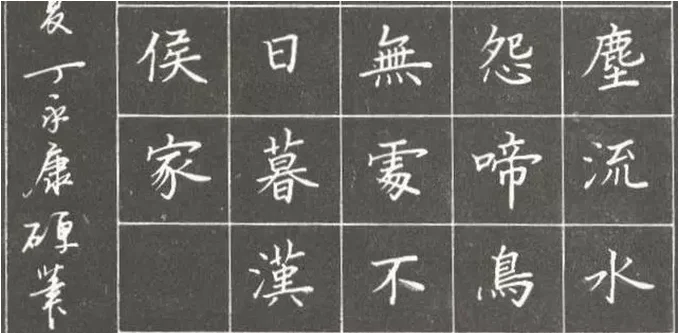 塵流水
怨啼鳥
無處不
日暮漢
侯家
丁永康硬筆